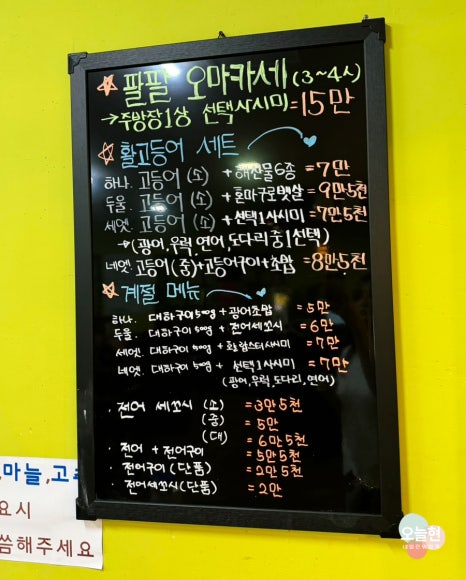 팔팔 오마카세 (3~4人)
→주방장1상 선택사시미=15만
활고등어 세트
하나. 고등어 (소) +해산물6종 =7만
두울. 고등어 (소) +혼마구로뱃살=9만5천
세엣. 고등어 (소) +선택1사시미=7만5천
→(광어,우럭,연어,도다리중1선택)
네엣.고등어(중)+고등어구이+초밥=8만5천
계절 메뉴
하나. 대하구이500g+광어초밥 =5만
두울. 대하구이500g+전어세꼬시 =6만
세엣. 대하구이500g+ =7만
네엣. 대하구이500g+ 선택1사시미 =7만
(광어,우럭,도다리,연어)
·전어 세꼬시 (소) =3만5천
(중) =5만
(대) =6만5천
·전어 + 전어구이 =5만5천
·전어구이(단품) =2만5천
·전어세꼬시(단품) =2만
마늘,고
요시
씀해주세요
오늘현